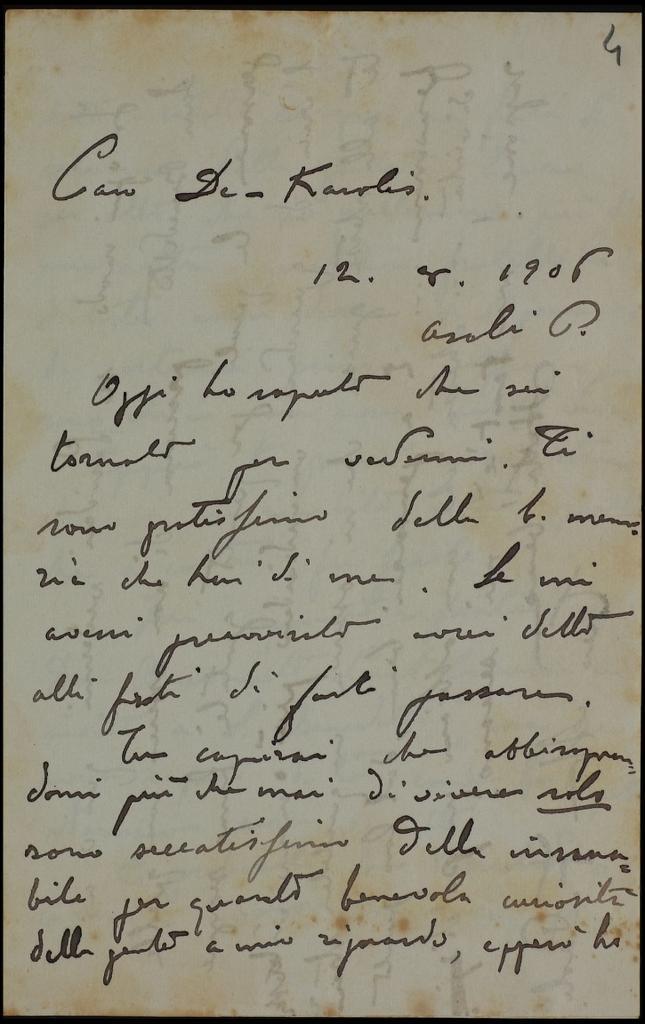 4
Caro De-Karolis.
12. 8. 1906
Ascoli P.
Oggi ho saputo che sei
tornato per vedermi. Ti
sono gratissimo della b. memo=
ria che hai di me. Se mi
avessi preavvisato avrei detto
alli frati di farti passare.
Tu capirai che abbisognan=
domi più che mai di vivere solo
sono seccatissimo della insana=
bile per quanto benevola curiosità
della gente a mio riguardo, epperò ho